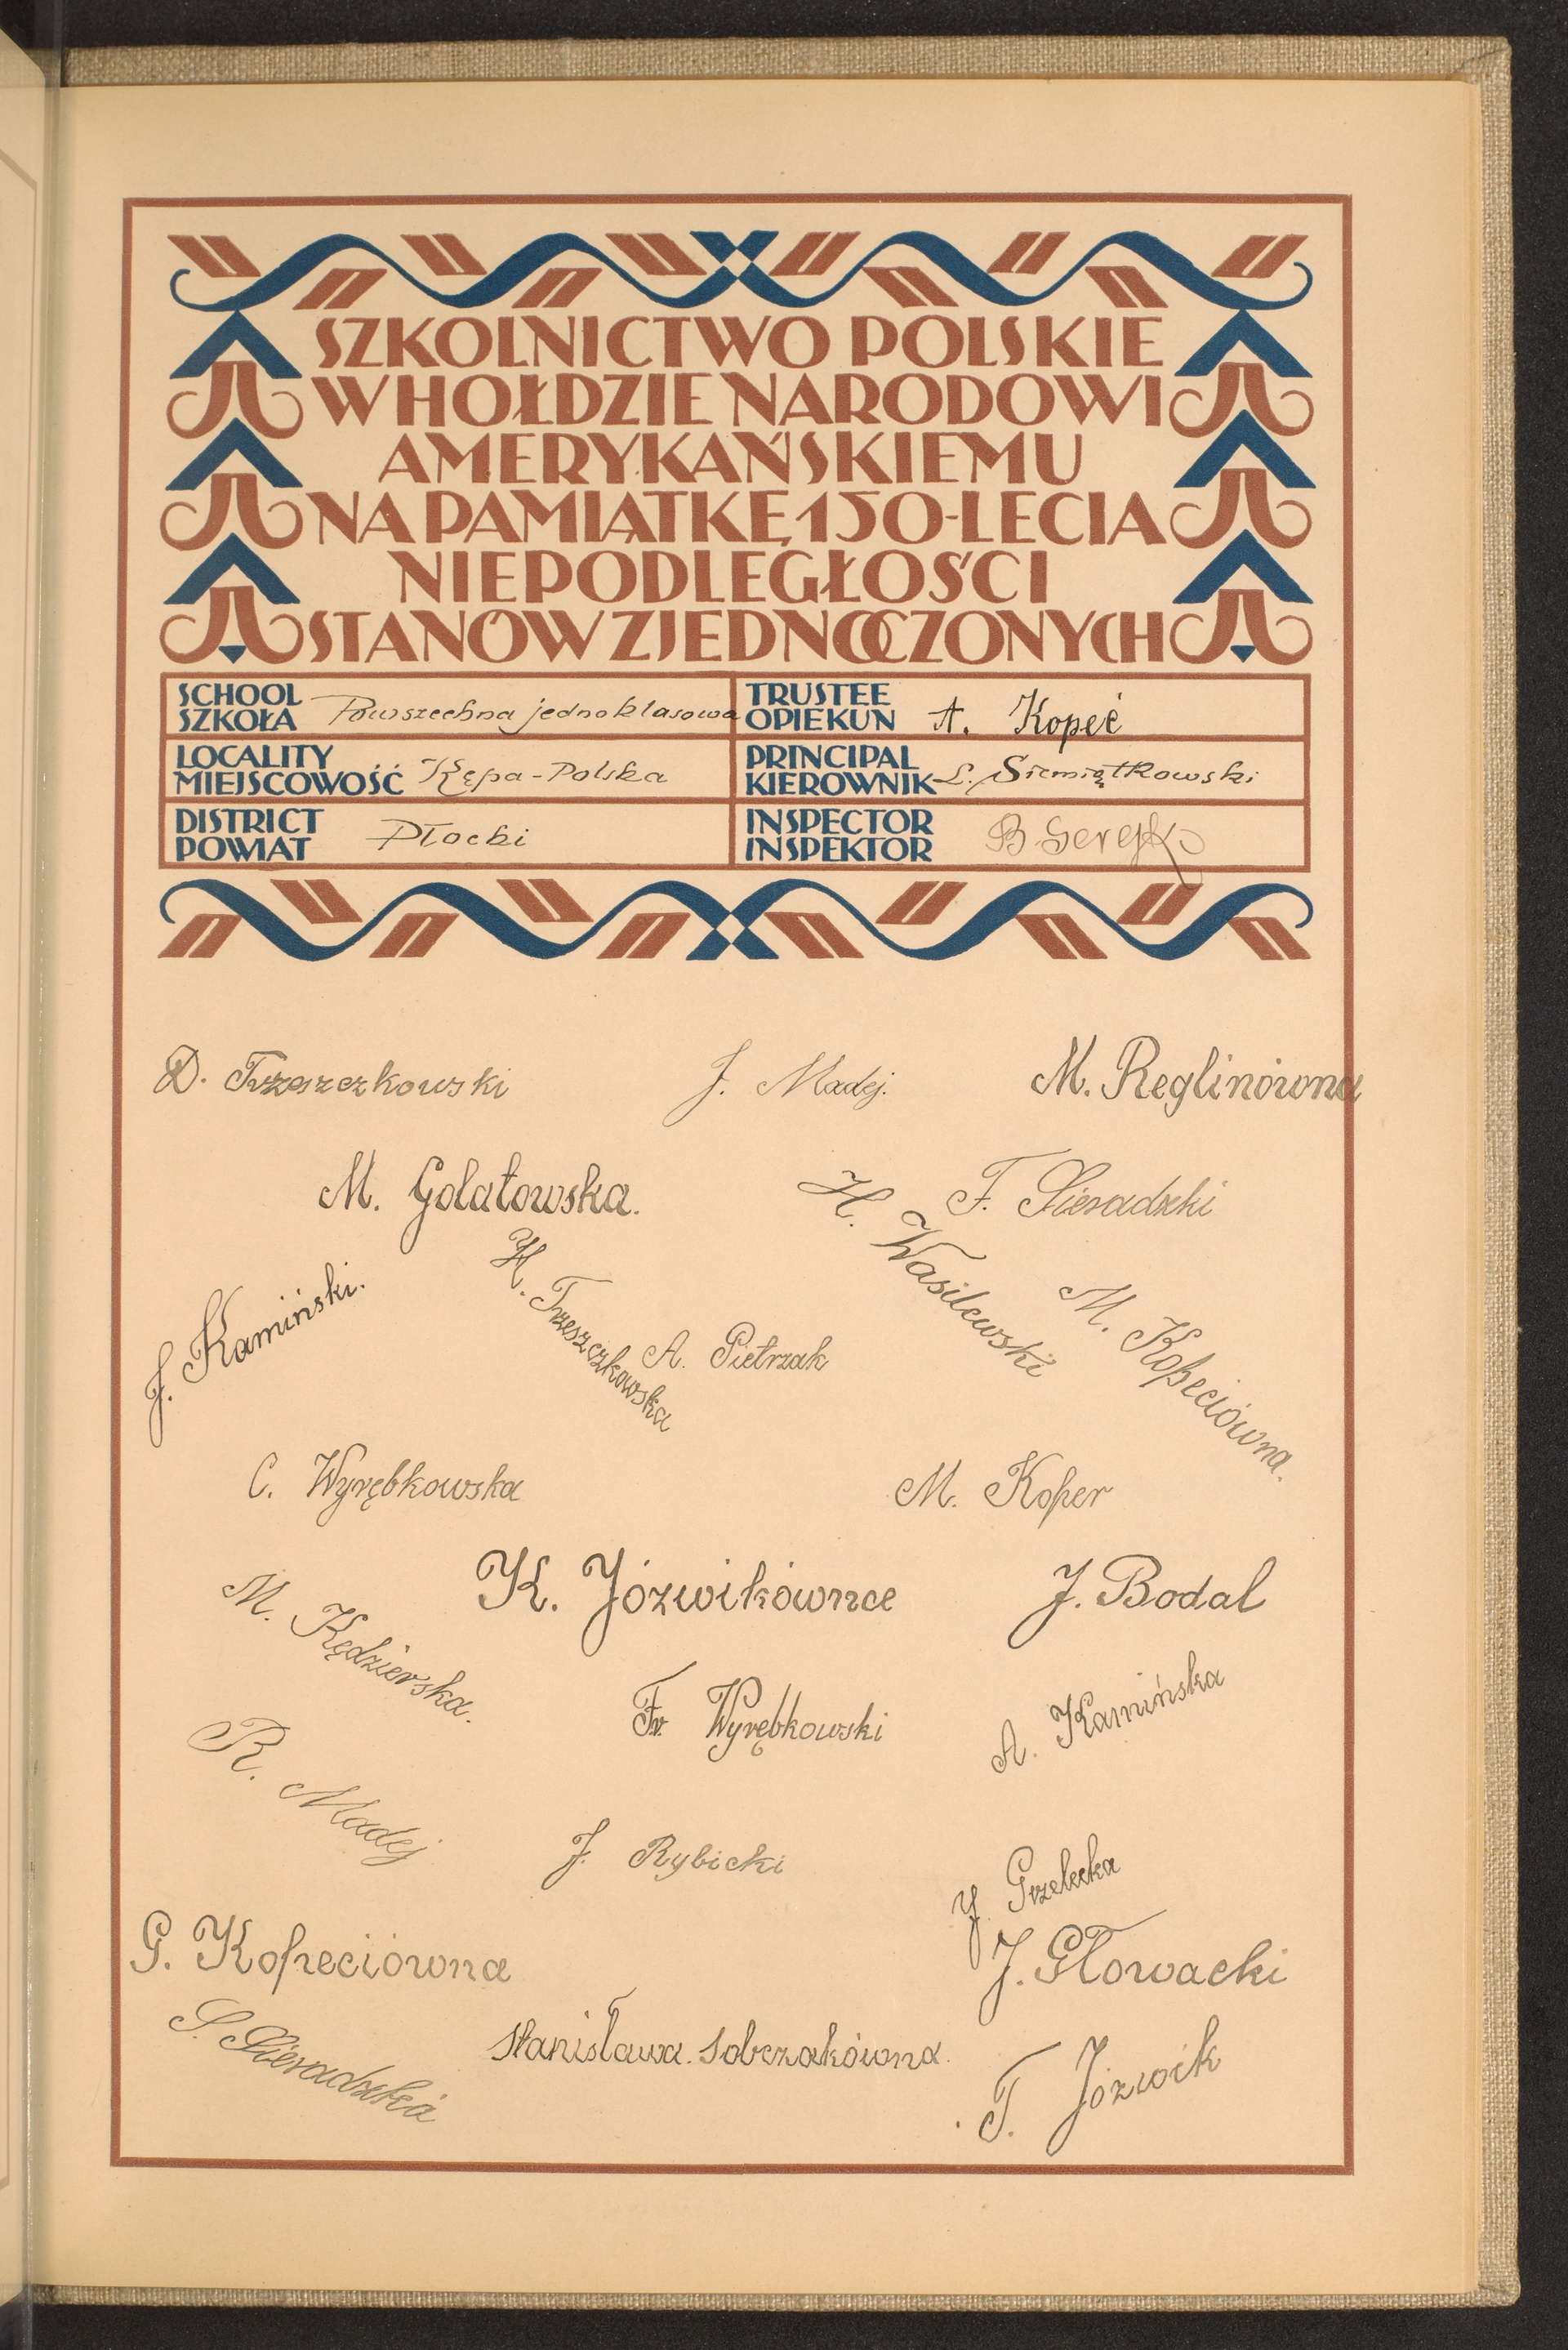 SZKOLNICTWO POLSKIE
W HOŁDZIE NARODOWI
AMERYKAŃSKIEMU
NA PAMIĄTKĘ 150-LECIA
NIEPODLEGŁOŚCI
STANÓW ZJEDNOCZONYCH
SCHOOL
SZKOŁA Powszechna jednoklasowa
TRUSTEE
OPIEKUN A. Kopeć
LOCALITY
MIEJSCOWOŚĆ Kępa-Polska
PRINCIPAL
KIEROWNIK L. Siemiątkowski
DISTRICT
POWIAT Płocki
INSPECTOR
INSPEKTOR B.
D. Trzeszczkowski
J. Madej.
M. Reglinówna
M. Golatowska.
H. Wasilewski
F. Sieradzki
J. Kamiński.
H. Trzeszczkowska
A. Pietrzak
M. Kopeciówna.
C. Wyrębkowska
M. Koper
M. Kędzierska.
K. Józwikówna
J. Bodal
Fr. Wyrębkowski
A. Kamińska
R. Madej
J. Rybicki
J. Grzelecka
G. Kopeciówna
J. Głowacki
S. Sieradzka
Stanisława. Sobczakówna.
T. Józwik